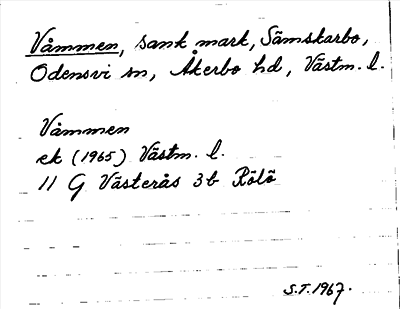 Våmmen, sank mark, Sämskarbo,
Odensvi sn, Åkerbo hd, Västm. l.
Våmmen
ek (1965) Västm. l.
11 G Västerås 3b Rölö
S.T. 1967.